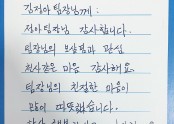 김정아팀장님께:
정아팀장님 감사합니다.
팀장님의 보살핌과 관심
천사같은 마음 감사해요.
팀장님의 친절한 마음이
많이 따뜻했습니다.